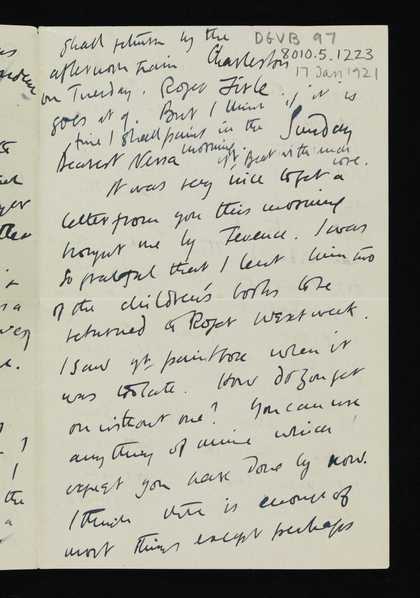 shall return by the
afternoon train
on Tuesday. Roger
goes at 9. But I think if it is
fine I shall paint in the
morning.
Yr Bear with much
love.
DGVB 97
8010.5.1223
17 Jan, 1921
Charleston
Firle.
Sunday
Dearest Nessa
It was very nice to get a
letter from you this morning
brought me by Terence. I was
so grateful that I lent him two
of the children's books to be
returned to Roger next week.
I saw yr paintbox when it
was too late. How do you get
on without one? You can use
anything of mine which I
expect you have done by now.
I think there is enough of
most things except perhaps
the
a
I